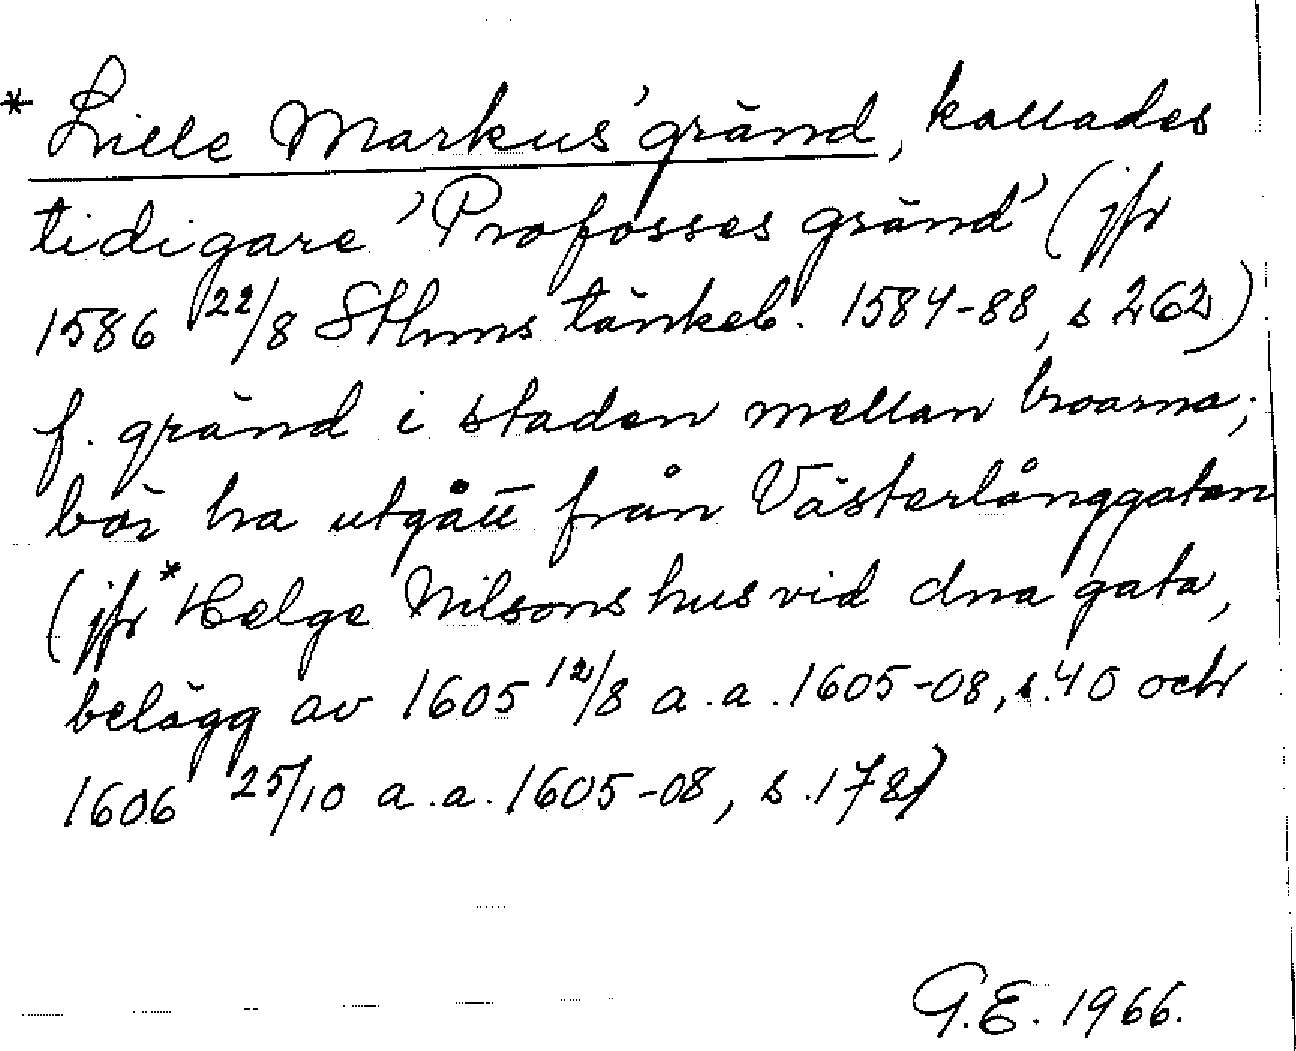 * Lille Markus' gränd, kallades
tidigare 'Profosses gränd' (jfr
1586 22/8 Sthms tänkeb. 1584-88, s 262)
f. gränd i staden mellan broarna;
bör ha utgått från Västerlånggatan
(jfr *Helge Nilsons hus vid dna gata,
belägg av 1605 12/8 a.a. 1605-08, s.40 och
1606 25/10 a.a. 1605-08, s.178)
G.E. 1966.